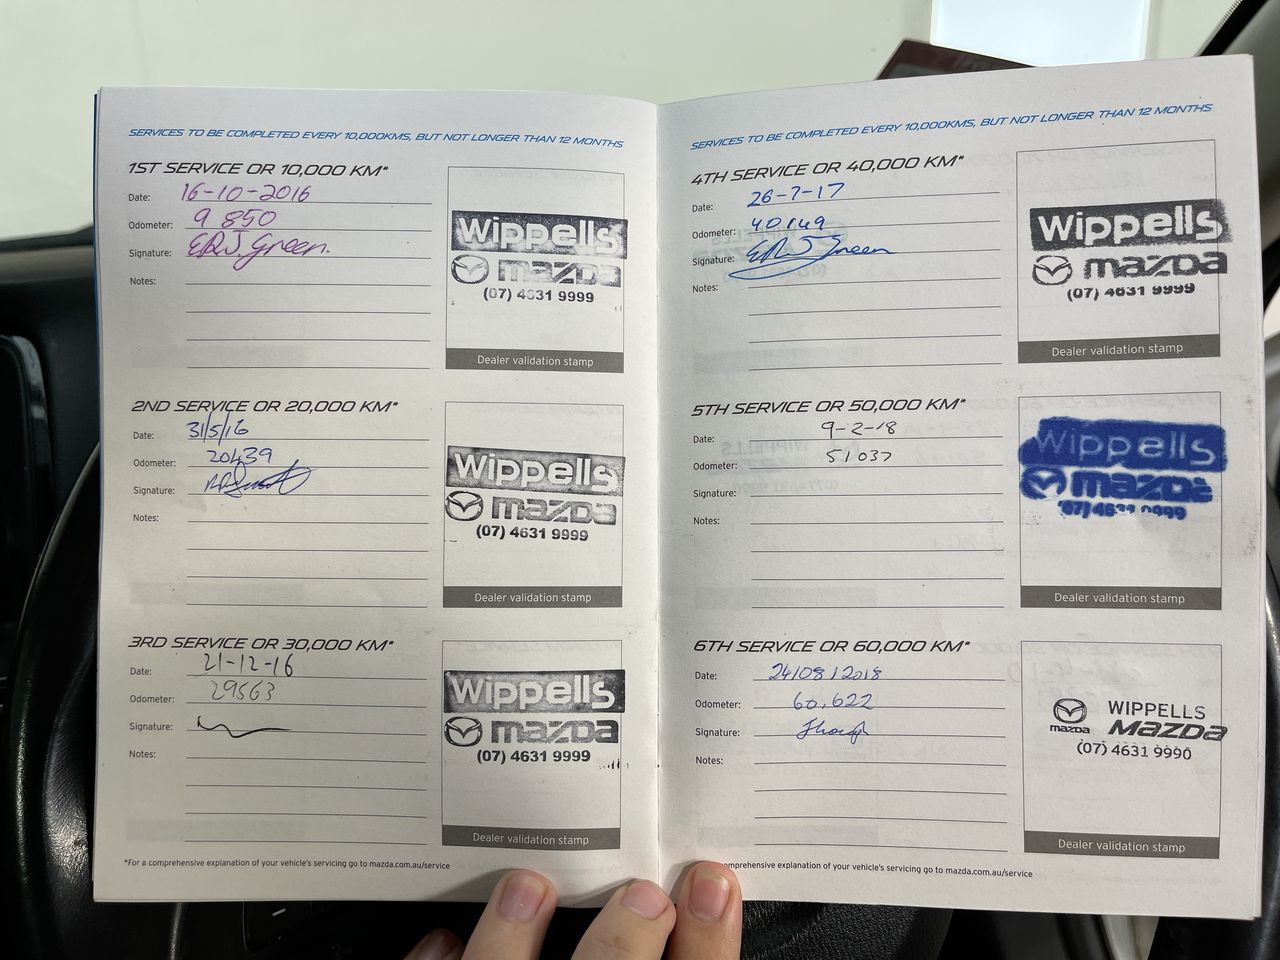 SERVICES TO BE COMPLETED EVERY 10,000KMS, BUT NOT LONGER THAN 12 MONTHS
1ST SERVICE OR 10,000 KM*
Date: 16-10-2016
Odometer: 9 850
Signature: E.R.J. Green.
Notes:
Wippells
mazda
(07) 4631 9999
Dealer validation stamp
2ND SERVICE OR 20,000 KM*
Date: 31/5/16
Odometer: 20439
Signature:
Notes:
Wippells
mazda
(07) 4631 9999
Dealer validation stamp
3RD SERVICE OR 30,000 KM*
Date: 21-12-16
Odometer: 29563
Signature:
Notes:
Wippells
mazda
(07) 4631 9999
Dealer validation stamp
*For a comprehensive explanation of your vehicle's servicing go to mazda.com.au/service
SERVICES TO BE COMPLETED EVERY 10,000KMS, BUT NOT LONGER THAN 12 MONTHS
4TH SERVICE OR 40,000 KM*
Date: 26-7-17
Odometer: 40149
Signature: Green
Notes:
Wippells
mazda
(07) 4631 9999
Dealer validation stamp
5TH SERVICE OR 50,000 KM*
Date: 9-2-18
Odometer: 51037
Signature:
Notes:
Wippells
mazda
(07) 4631 9999
Dealer validation stamp
6TH SERVICE OR 60,000 KM*
Date: 24/08/2018
Odometer: 60,622
Signature:
Notes:
WIPPELLS
mazda MAZDA
(07) 4631 9990
Dealer validation stamp
comprehensive explanation of your vehicle's servicing go to mazda.com.au/service